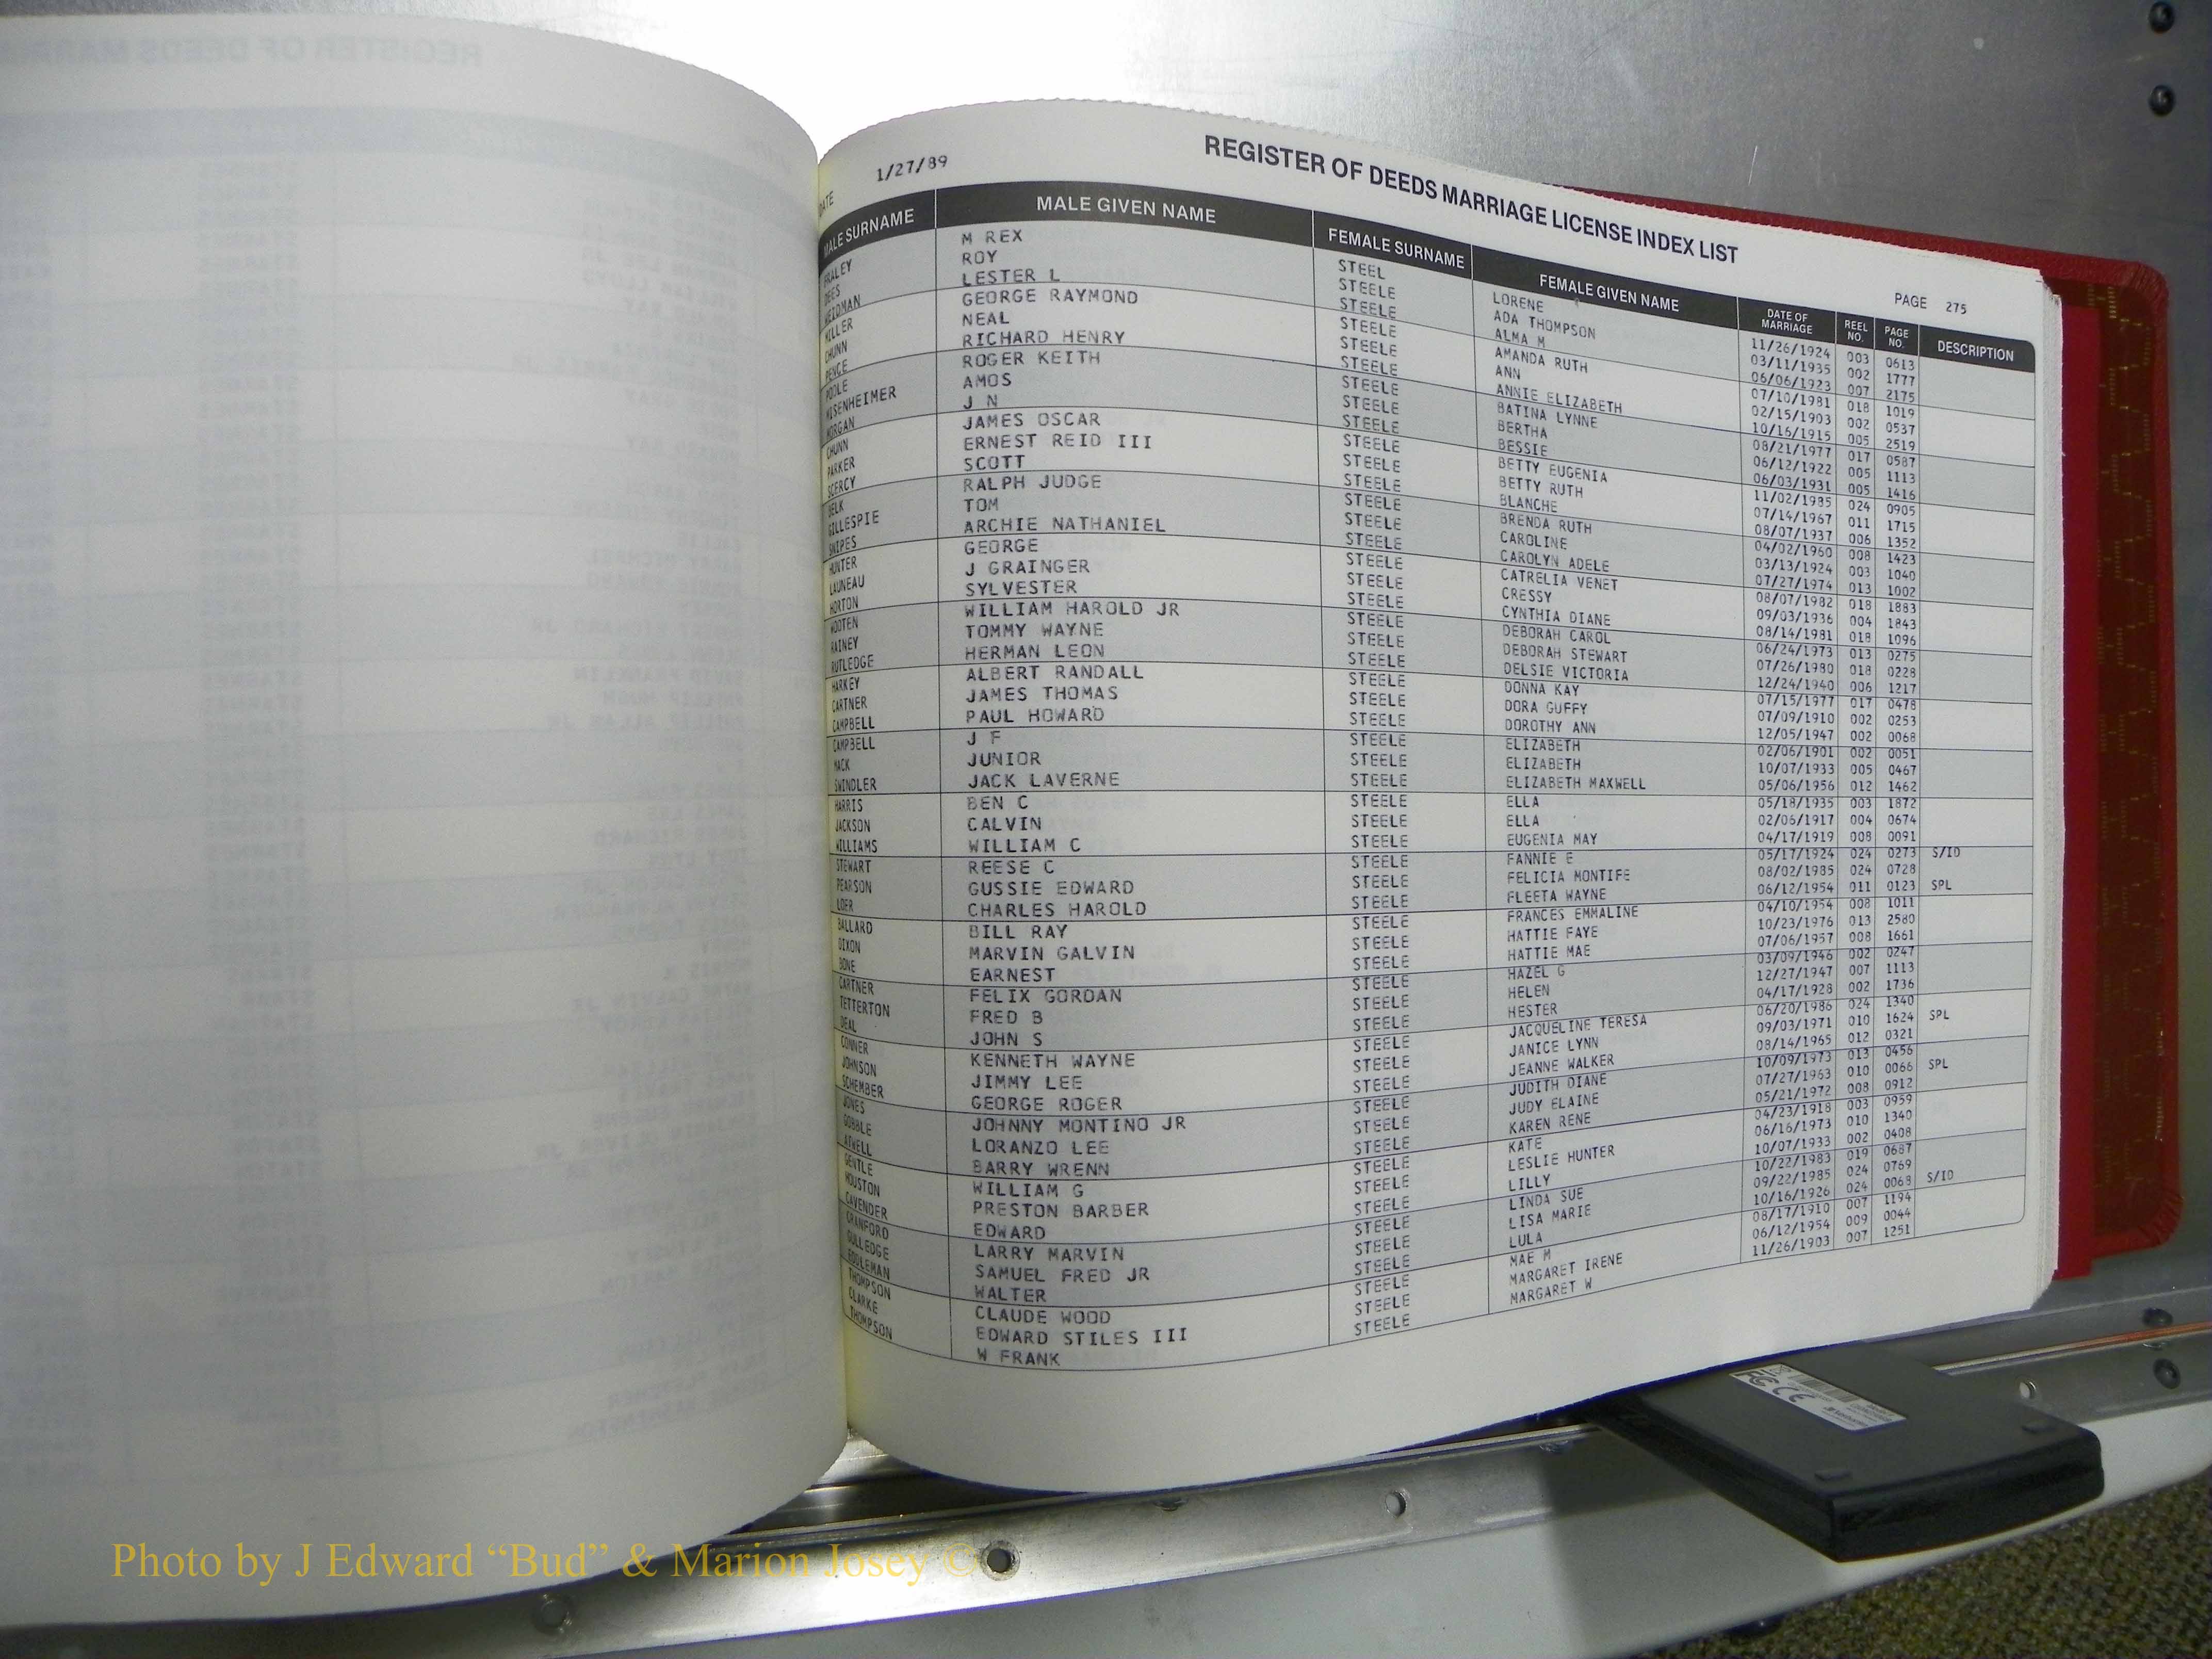 REGISTER OF DEEDS MARRIAGE LICENSE INDEX LIST
DATE 1/27/89
PAGE 275
MALE SURNAME MALE GIVEN NAME FEMALE SURNAME FEMALE GIVEN NAME DATE OF MARRIAGE REEL NO. PAGE NO. DESCRIPTION
FRALEY M REX STEEL LORENE 11/26/1924 003 0613
DEES ROY STEELE ADA THOMPSON 03/11/1935 002 1777
WEIDMAN LESTER L STEELE ALMA M 06/06/1923 007 2175
MILLER GEORGE RAYMOND STEELE AMANDA RUTH 07/10/1981 018 1019
CHUNN NEAL STEELE ANN 02/15/1903 002 0537
PENCE RICHARD HENRY STEELE ANNIE ELIZABETH 10/16/1915 005 2519
POOLE ROGER KEITH STEELE BATINA LYNNE 08/21/1977 017 0587
MISENHEIMER AMOS STEELE BERTHA 06/12/1922 005 1113
MORGAN J N STEELE BESSIE 06/03/1931 005 1416
CHUNN JAMES OSCAR STEELE BETTY EUGENIA 11/02/1985 024 0905
PARKER ERNEST REID III STEELE BETTY RUTH 07/14/1967 011 1715
SCERCY SCOTT STEELE BLANCHE 08/07/1937 006 1352
BELK RALPH JUDGE STEELE BRENDA RUTH 04/02/1960 008 1423
GILLESPIE TOM STEELE CAROLINE 03/13/1924 003 1040
SNIPES ARCHIE NATHANIEL STEELE CAROLYN ADELE 07/27/1974 013 1002
HUNTER GEORGE STEELE CATRELIA VENET 08/07/1982 018 1883
LAUNEAU J GRAINGER STEELE CRESSY 09/03/1936 004 1843
HORTON SYLVESTER STEELE CYNTHIA DIANE 08/14/1981 018 1096
WOOTEN WILLIAM HAROLD JR STEELE DEBORAH CAROL 06/24/1973 013 0275
RAINEY TOMMY WAYNE STEELE DEBORAH STEWART 07/26/1980 018 0228
RUTLEDGE HERMAN LEON STEELE DELSIE VICTORIA 12/24/1940 006 1217
HARKEY ALBERT RANDALL STEELE DONNA KAY 07/15/1977 017 0478
CARTNER JAMES THOMAS STEELE DORA GUFFY 07/09/1910 002 0253
CAMPBELL PAUL HOWARD STEELE DOROTHY ANN 12/05/1947 002 0068
CAMPBELL J F STEELE ELIZABETH 02/06/1901 002 0051
MACK JUNIOR STEELE ELIZABETH 10/07/1933 005 0467
SWINDLER JACK LAVERNE STEELE ELIZABETH MAXWELL 05/06/1956 012 1462
HARRIS BEN C STEELE ELLA 05/18/1935 003 1872
JACKSON CALVIN STEELE ELLA 02/06/1917 004 0674
WILLIAMS WILLIAM C STEELE EUGENIA MAY 04/17/1919 008 0091
STEWART REESE C STEELE FANNIE E 05/17/1924 024 0273 S/ID
PEARSON GUSSIE EDWARD STEELE FELICIA MONTIFE 08/02/1985 024 0728
LOER CHARLES HAROLD STEELE FLEETA WAYNE 06/12/1954 011 0123 SPL
BALLARD BILL RAY STEELE FRANCES EMMALINE 04/10/1954 008 1011
DIXON MARVIN GALVIN STEELE HATTIE FAYE 10/23/1976 013 2580
BONE EARNEST STEELE HATTIE MAE 07/06/1957 008 1661
CARTNER FELIX GORDAN STEELE HAZEL G 03/09/1946 002 0247
TETTERTON FRED B STEELE HELEN 12/27/1947 007 1113
DEAL JOHN S STEELE HESTER 04/17/1928 002 1736
CONNER KENNETH WAYNE STEELE JACQUELINE TERESA 06/20/1986 024 1340
JOHNSON JIMMY LEE STEELE JANICE LYNN 09/03/1971 010 1624 SPL
SCHEMBER GEORGE ROGER STEELE JEANNE WALKER 08/14/1965 012 0321
JONES JOHNNY MONTINO JR STEELE JUDITH DIANE 10/09/1973 013 0456
GOBBLE LORANZO LEE STEELE JUDY ELAINE 07/27/1963 010 0066 SPL
ATWELL BARRY WRENN STEELE KAREN RENE 05/21/1972 008 0912
GENTLE WILLIAM G STEELE KATE 04/23/1918 003 0959
HOUSTON PRESTON BARBER STEELE LESLIE HUNTER 06/16/1973 010 1340
CAVENDER EDWARD STEELE LILLY 10/07/1933 002 0408
CRANFORD LARRY MARVIN STEELE LINDA SUE 10/22/1983 019 0687
GULLEDGE SAMUEL FRED JR STEELE LISA MARIE 09/22/1985 024 0769
EDDLEMAN WALTER STEELE LULA 10/16/1926 024 0068 S/ID
THOMPSON CLAUDE WOOD STEELE MAE M 08/17/1910 007 1194
CLARKE EDWARD STILES III STEELE MARGARET IRENE 06/12/1954 009 0044
THOMPSON W FRANK STEELE MARGARET W 11/26/1903 007 1251
Photo by J Edward “Bud” & Marion Josey ©